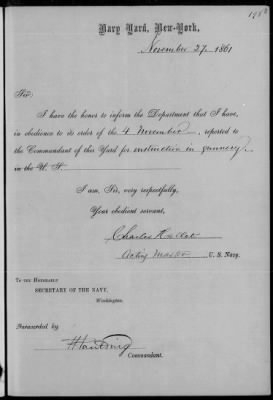 Navy Yard, New-York,
November 27 1861
Sir:
I have the honor to inform the Department that I have,
in obedience to its order of the 4 November, reported to
the Commandant of this Yard for instruction in gunnery.
in the U. S.
I am, Sir, very respectfully,
Your obedient servant,
Charles
Acting Master U. S. Navy.
To the Honorable
SECRETARY OF THE NAVY,
Washington.
Forwarded by
Commandant.